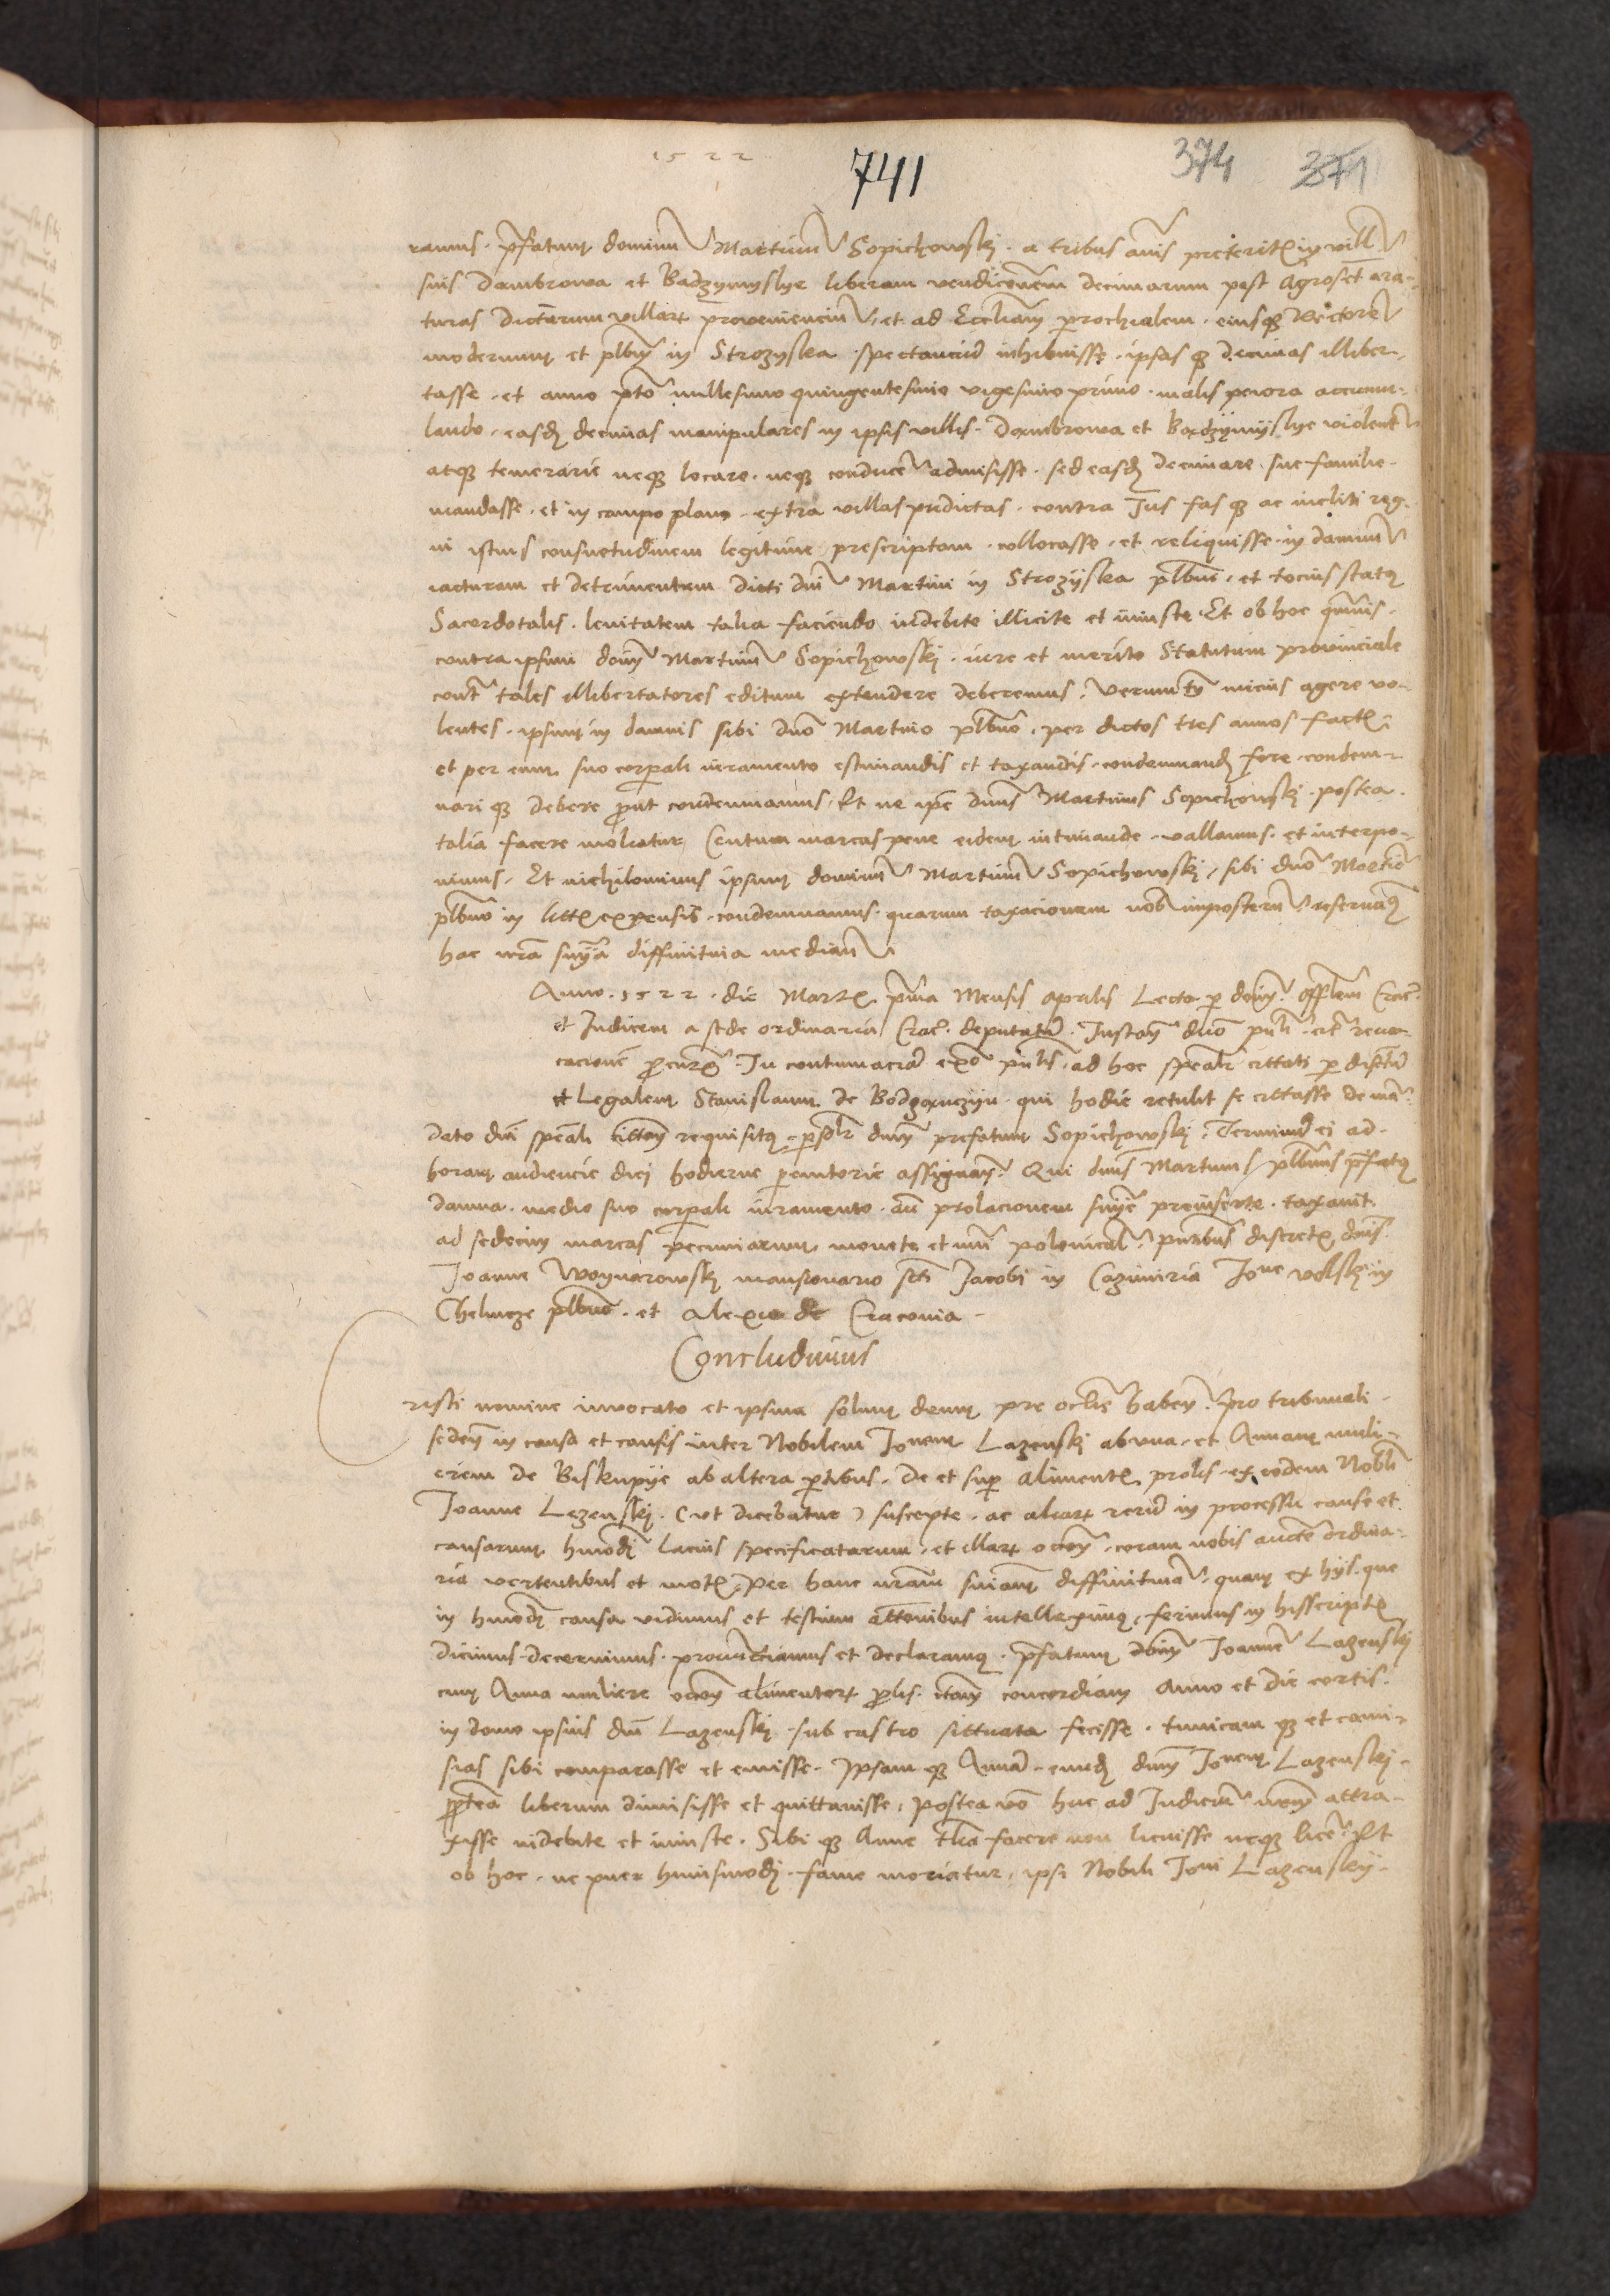 1522
741
374 371
ramus. p̄fatum dominū Martinū Sopichowskj. a tribus annis preteritis in vill
suis Dambrowa et Badzymyslye liberam vendicionem decimarum post Agros et ara-
turas dictarum villarum proveniencium, et ad Eccliam parochialem. eiusq̄ Rectorē
modernum et plbnū in Strozyska spectancium inhibuisse. ipsas q̄ decimas illiber-
tasse. et anno pto millesimo quingentesimo vigesimo primo. malis peiora accumu-
lando. easdē decimas manipulares in ipsis villis. Dambrowa et Badzymyslye violent
atq̄ temerarie neq̄ locare. neq̄ conducē admisisse. sed easdē decimare sue familie
mandasse. et in campo plano. extra villas predictas. contra Jus fas q̄ ac incliti reg-
ni istius consuetudinem legitime prescriptam. collocasse. et reliquisse. in damnū
iacturam et detrimentum dicti dni Martini in Strozyska plbni. et tocius status
Sacerdotalis. levitatem talia faciendo indebite illicite et iniuste Et ob hoc quamvis.
contra ipsum donū Martinū Sopichowskj. iure et merito Statutum provinciale
cont tales illibertatores editum extendere deberemus. Verumtn micius agere vo-
lentes. ipsum in damnis sibi dno Martino plbno. per dictos tres annos factis
et per eum suo corporali iuramento estimandis et taxandis. condemnandū fore. condem-
nari q̄ debere prout condemnamus. Et ne ipse dnus Martinus Sopichowskj. postea.
talia facere moliatur Centum marcas pene eidem intimande vallamus. et interpo-
nimus. Et nichilominus ipsum dominū Martinū Sopichowskj. sibi dno Martino
plbno in littis expensis. condemnamus. quarum taxacionem nob imposterū reservatis
hac nra snia diffinitiva mediante
Anno. 1522. die Martis. prima Mensis aprilis Lecta per donū offlem Crac.
et Judicem a sede ordinaria Crac. deputatū. Instan dno
In contumaciam ad hoc spcali cittati per discretū
et Legalem Stanislaum de Bodzanczyn. qui hodie retulit se cittasse de man-
dato dni spcali requisitus. dnū prefatum Sopichowskj. Terminū ei ad-
horam audiencie diej hodierne peremtorie assignan. Qui dnus Martinus plbnus p̄fatus
damna. medio suo corporali iuramento. an prolacionem snie preinserte. taxavit
ad sedecim marcas pecuniarum monete et nuī polonical. pntibus discretis dnis.
Joanne Woynarowskj mansionario scti Jacobi in Cazimiria Jone volskj in
Chelmcze plbno. et Alexio de Cracovia.
Concludimus
Cristi nomine invocato et ipsum solum deum pre oclis haben. pro tribunali
seden in causa et causis inter Nobilem Jonem Lazenskj ab una. et Annam muli-
erem de Biskupye ab altera partibus. De et super alimentis prolis ex eodem Nobli
Joanne Lezenskj. (ut dicebatur) suscepte. ac aliarum rerum in processu cause et
causarum hmodi lacius specificatarum. et illarum occōn. coram nobis aucte ordina-
ria vertentibus et motis. Per hanc nram sniam diffinitivā. quam ex hys. que
in hmodi causa vidimus et testium attonibus intelleximus. ferimus in hisscriptis
dicimus. decernimus. pronunctiamus et declaramus. p̄fatum donū Joannē Lazenskj
cum Anna muliere occōn alimentorum prolis. concordiam Anno et die certis.
in domo ipsius dni Lazenskj. sub castro sittuata fecisse. tunicam q̄ et cami-
sias sibi comparasse et emisse. Ipsam q̄ Annā. eundē dnū Jonem Lazenskj.
propterea liberum dimisisse et quittavisse. Postea vō huc ad Judiciū nrm attra-
xisse indebite et iniuste. Sibi q̄ Anne tlia facere non licuisse neq̄ licē. Et
ob hoc. ne puer huiusmodi. fame moriatur. ipsi Nobili Joni Lazenskj.